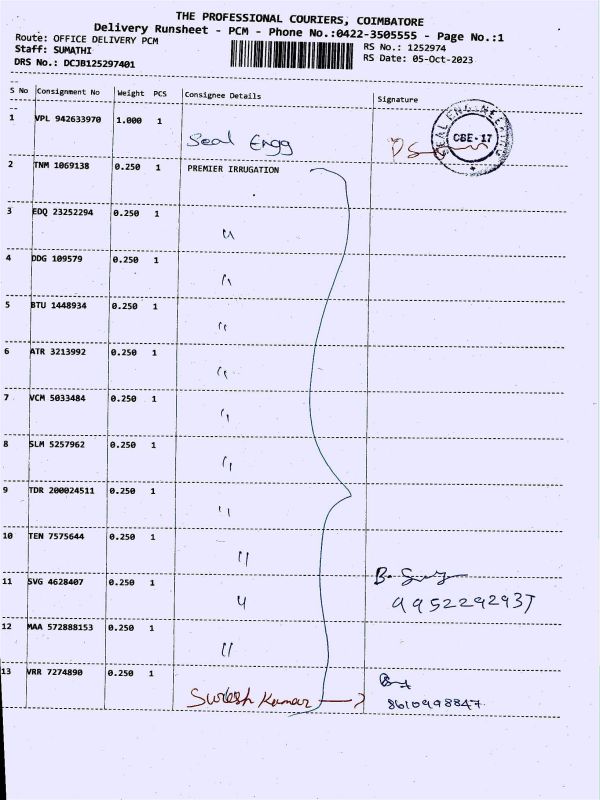 THE PROFESSIONAL COURIERS, COIMBATORE
Delivery Runsheet - PCM - Phone No.:0422-3505555 - Page No.:1
Route: OFFICE DELIVERY PCM RS No.: 1252974
Staff: SUMATHI RS Date: 05-Oct-2023
DRS No.: DCJB125297401
S No Consignment No Weight PCS Consignee Details Signature
1 VPL 942633970 1.000 1
Seal Engg
SEAL ENGINEERING CBE-17
2 TNM 1069138 0.250 1 PREMIER IRRUGATION
3 EDQ 23252294 0.250 1
"
4 DDG 109579 0.250 1
"
5 BTU 1448934 0.250 1
"
6 ATR 3213992 0.250 1
"
7 VCM 5033484 0.250 1
"
8 SLM 5257962 0.250 1
"
9 TDR 200024511 0.250 1
"
10 TEN 7575644 0.250 1
"
11 SVG 4628407 0.250 1
" 9952292937
12 MAA 572888153 0.250 1
"
13 VRR 7274890 0.250 1
Suresh Kumar 8610998847